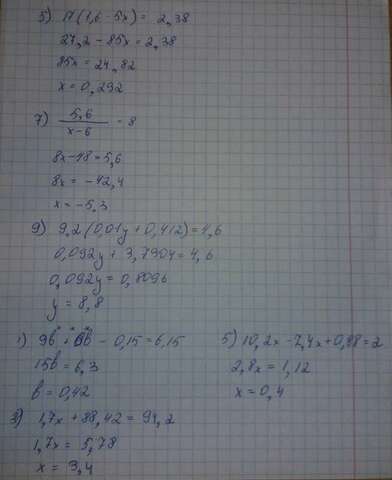 5) 17(1,6 - 5x) = 2,38
27,2 - 85x = 2,38
85x = 24,82
x = 0,292
7) 5,6 / x-6 = 8
8x - 48 = 5,6
8x = -42,4
x = -5,3
9) 9,2(0,01y + 0,412) = 4,6
0,092y + 3,7904 = 4,6
0,092y = 0,8096
y = 8,8
1) 9b + 6b - 0,15 = 6,15
15b = 6,3
b = 0,42
3) 1,7x + 88,42 = 94,2
1,7x = 5,78
x = 3,4
5) 10,2x - 7,4x + 0,88 = 2
2,8x = 1,12
x = 0,4